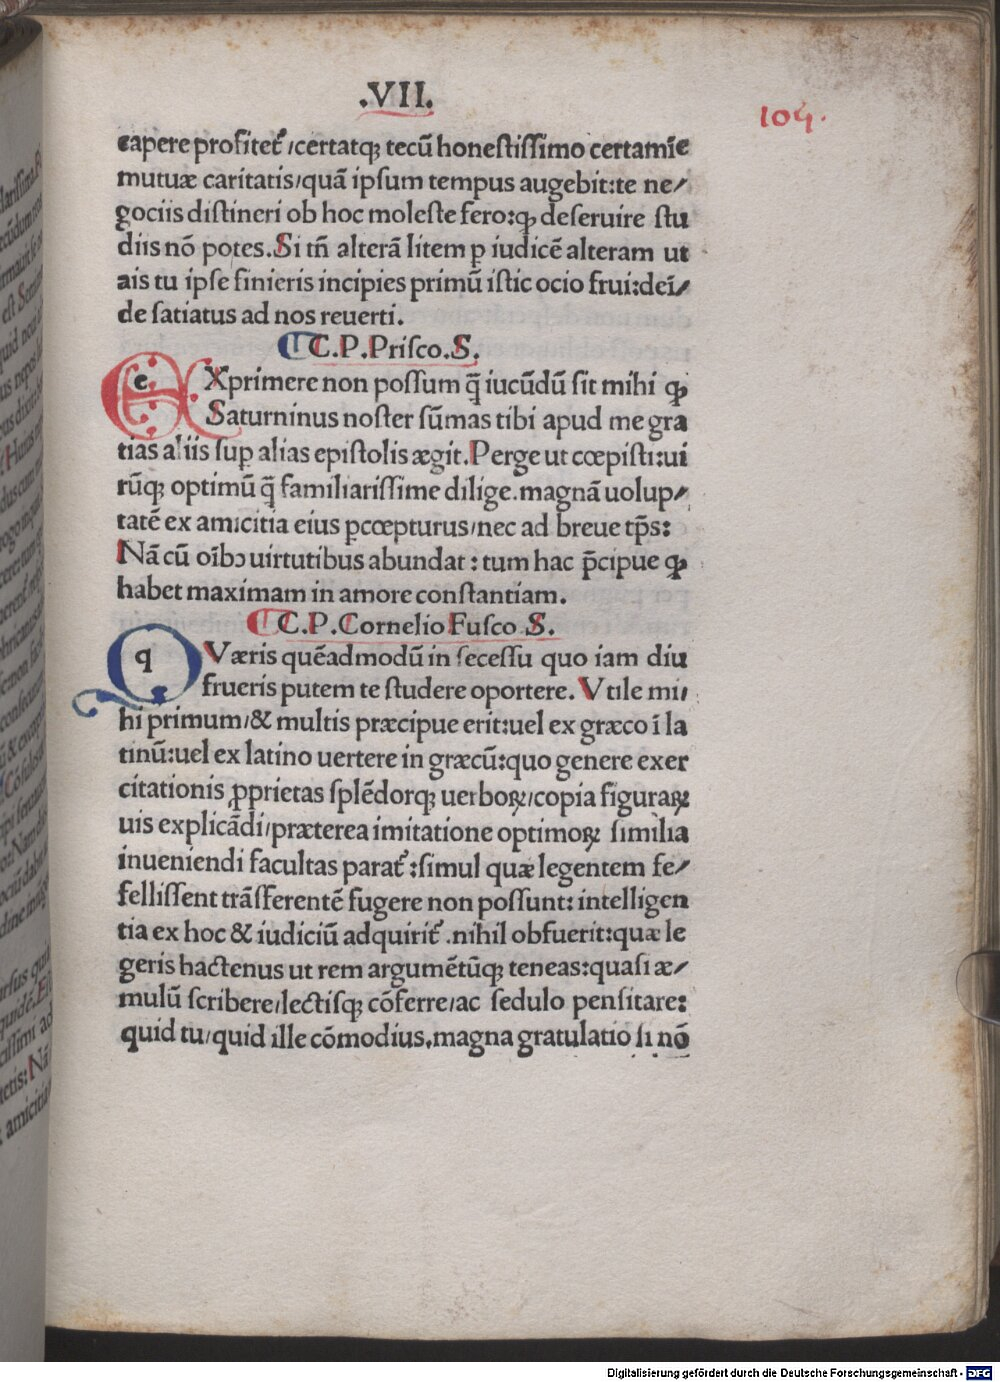 .VII.
104.
capere profitet᷑/certatqꝫ tecū honestissimo certamīe
mutuæ caritatis/quā ipsum tempus augebit:te ne/
gociis distineri ob hoc moleste fero:ꝙ deseruire stu
diis nō potes.Si tñ alterā litem ꝑ iudicē alteram ut
ais tu ipse finieris incipies primū istic ocio frui:deī/
de satiatus ad nos reuerti.
C.P.Prisco.S.
eXprimere non possum q̄ iucūdū sit mihi ꝙ
Saturninus noster sūmas tibi apud me gra
tias aliis suꝑ alias epistolis ægit.Perge ut cœpisti:ui
rūqꝫ optimū q̄ familiarissime dilige.magnā uolup/
tatē ex amicitia eius ꝑcœpturus/nec ad breue tp̄s:
Nā cū oībꝰ uirtutibus abundat : tum hac p̄cipue ꝙ
habet maximam in amore constantiam.
C.P.Cornelio Fusco S.
qVæris quēadmodū in secessu quo iam diu
frueris putem te studere oportere. Vtile mi/
hi primum/& multis præcipue erit:uel ex græco ī la
tinū:uel ex latino uertere in græcū:quo genere exer
citationis ꝓprietas splēdorqꝫ uerboꝝ/copia figuraꝝ
uis explicādi/præterea imitatione optimoꝝ similia
inueniendi facultas parat᷑ :simul quæ legentem fe/
fellissent trāsferentē fugere non possunt: intelligen
tia ex hoc & iudiciū adquirit᷑ .nihil obfuerit:quæ le
geris hactenus ut rem argumētūqꝫ teneas:quasi æ/
mulū scribere/lectisqꝫ cōferre/ac sedulo pensitare:
quid tu/quid ille cōmodius.magna gratulatio si nō
Digitalisierung gefördert durch die Deutsche Forschungsgemeinschaft - DFG